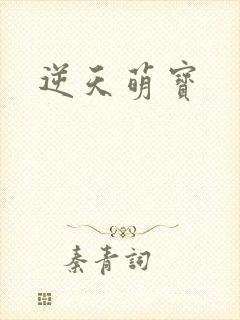 逆天萌寶
秦青詞